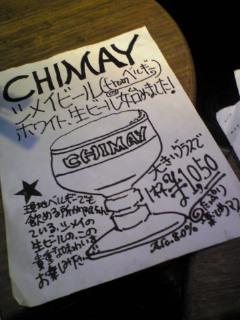 CHIMAY
シメイビール(from ベルギー)
ホワイト・生ビール始めました!
CHIMAY
大きいグラスで
¥1,050
Alc.8.0%
たっぷり
★
現地ベルギーでも
飲める所が
ている、シメイの
生ビールの、この
貴重な味わいを
お楽しみ下さい